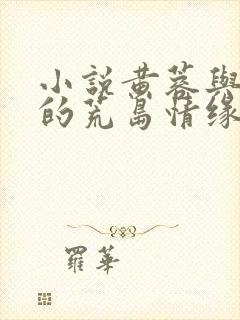 小說黄蓉與
的荒島情缘
羅華